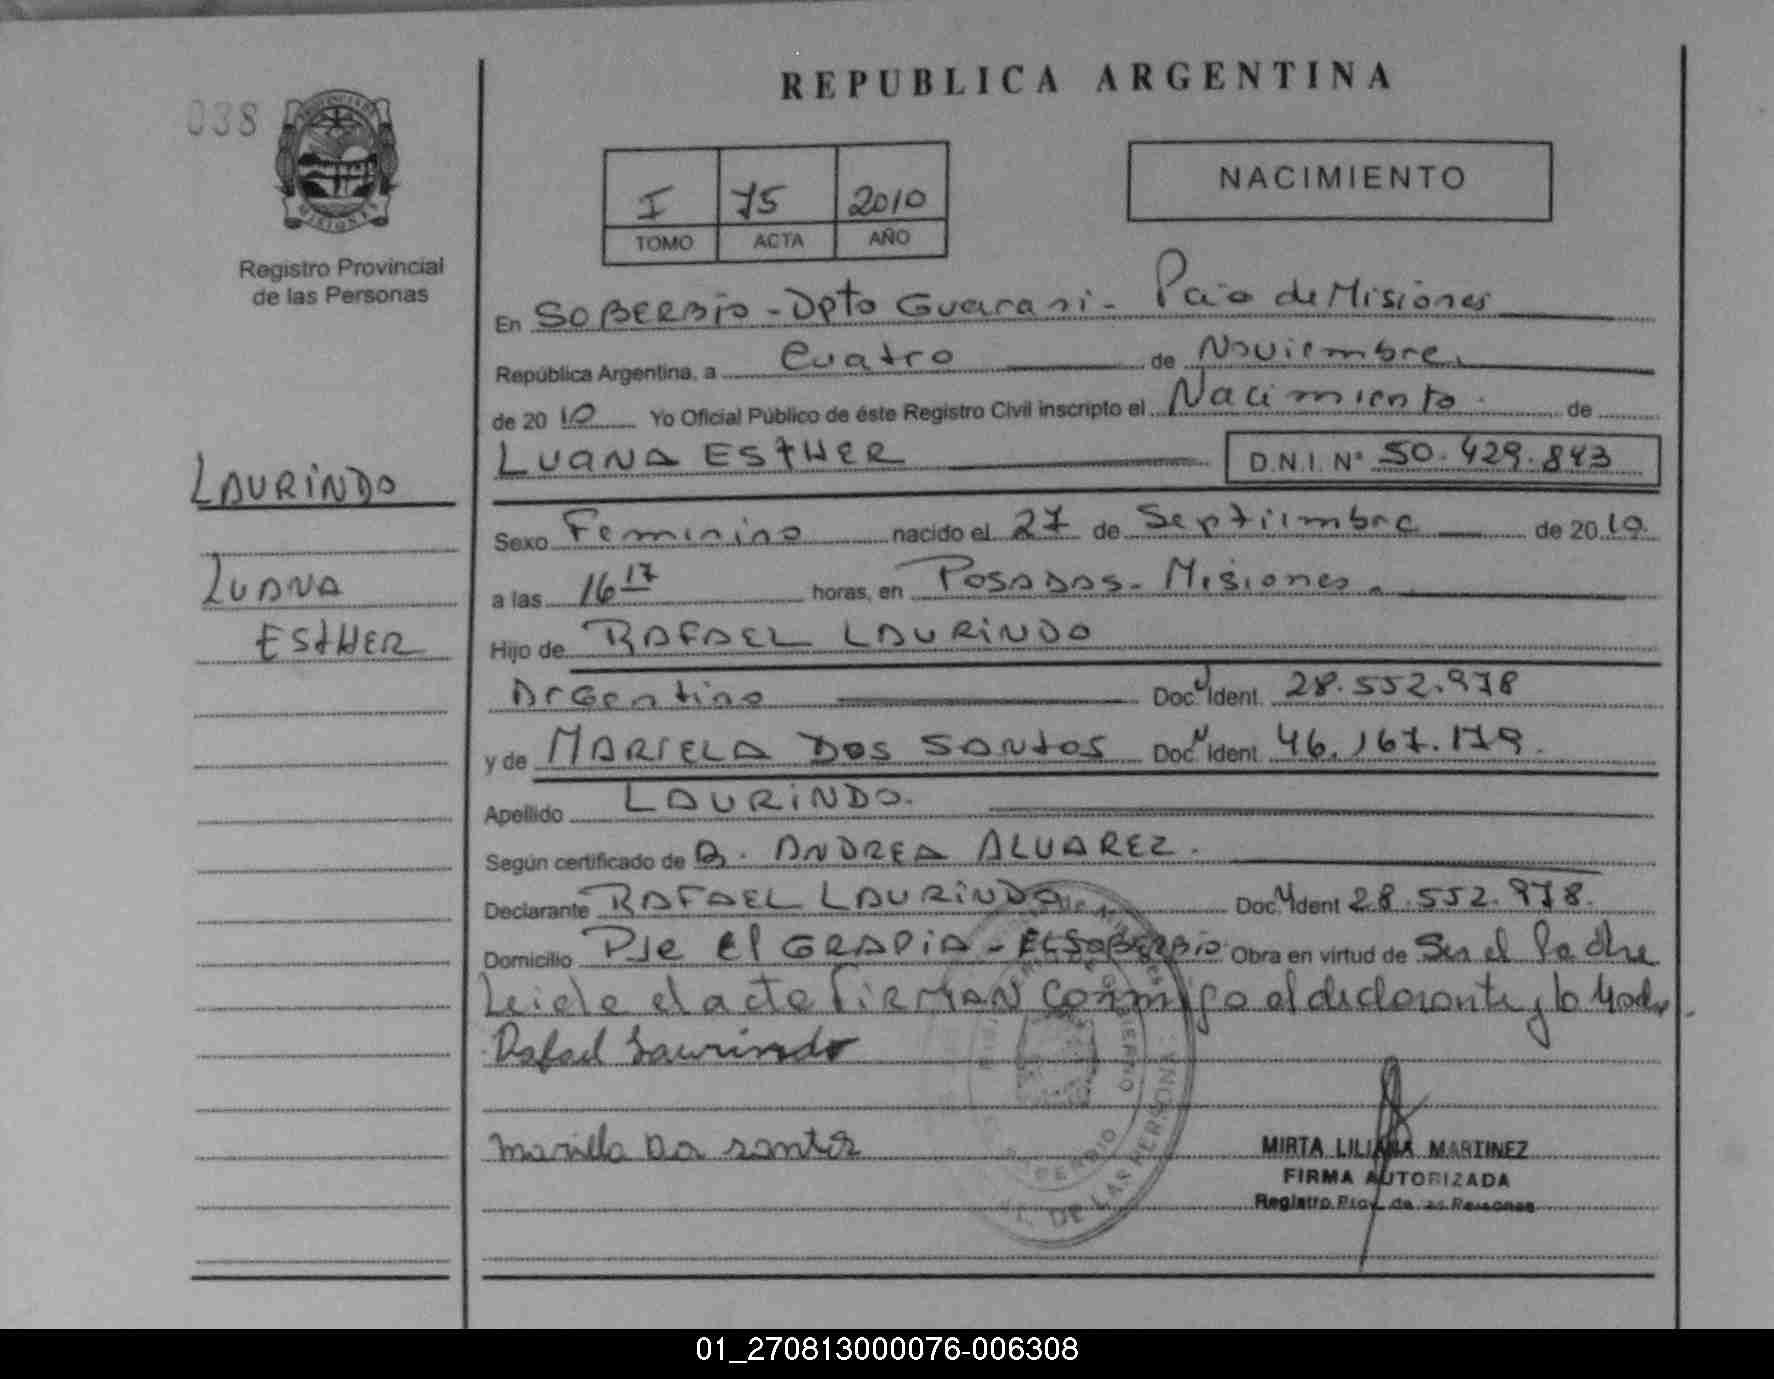 REPUBLICA ARGENTINA
038
PROVINCIA DE
MISIONES
Registro Provincial
de las Personas
I 75 2010
TOMO ACTA AÑO
NACIMIENTO
En SOBERBIO - Dpto Guarani - Pcia de Misiones
República Argentina, a Cuatro de Noviembre.
de 2010 Yo Oficial Público de éste Registro Civil inscripto el Nacimiento de
LUANA ESTHER D.N.I. Nº 50.429.843
LAURINDO
LUANA
ESTHER
Sexo Femenino nacido el 27 de Septiembre de 2010.
a las 16 17 horas, en POSADAS - Misiones.
Hijo de RAFAEL LAURINDO
Argentino Doc. Ident. 28.552.978
y de MARIELA DOS SANTOS Doc. Ident. 46.167.179.
Apellido LAURINDO.
Según certificado de ANDREA ALVAREZ.
Declarante RAFAEL LAURINDO Doc. Ident 28.552.978.
Domicilio Pje El GRAPIA - EL SOBERBIO Obra en virtud de Ser el Padre
Leida el acta FIRMAN conmigo el declarante y la Madre.
Rafael Laurindo
Mariela Dos santos
SOBERBIO
DE LAS PERSONAS
MIRTA LILIANA MARTINEZ
FIRMA AUTORIZADA
Registro Prov. de las Personas
01_270813000076-006308